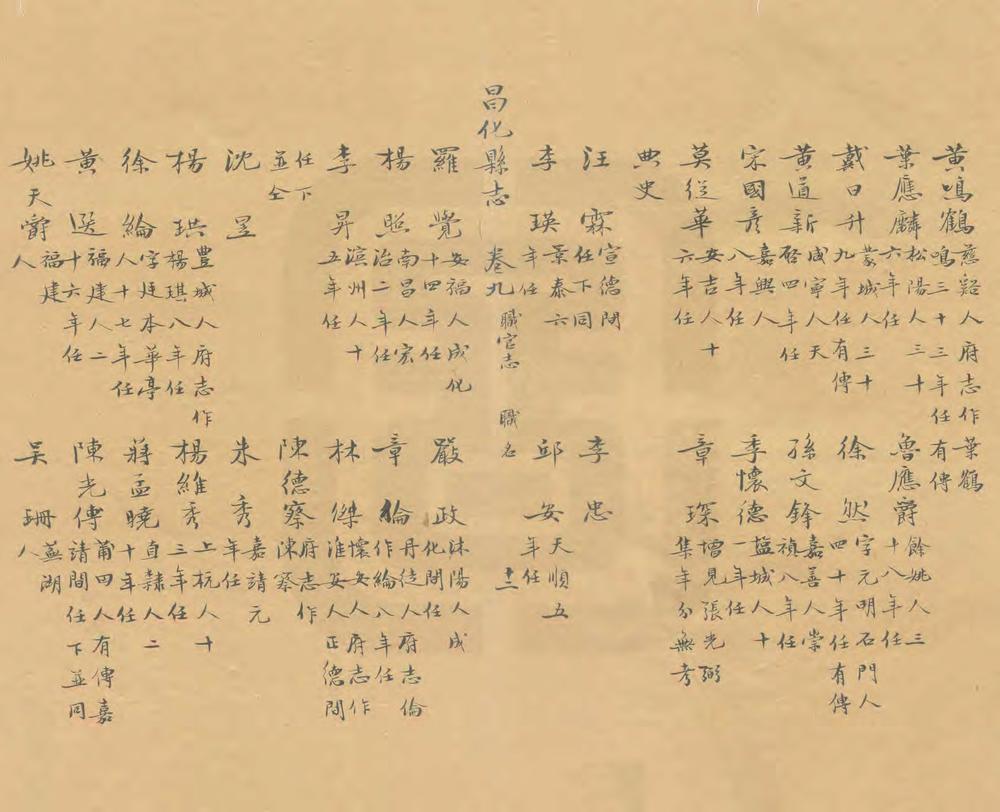 黃鳴鶴 慈谿人府志作葉鶴鳴三十三年任有傳
葉應麟 松陽人三十六年任 魯應爵 餘姚人三十八年任
戴日升 蒙城人三十九年任有傳 徐然 字元明石門人四十年任有傳
黃道新 咸寧人天啓四年任 孫文鋒 嘉善人崇禎八年任
宋國彥 嘉興人八年任 季懷德 塩城人十一年任
莫從華 安吉人十六年任 章琛 增見張光弼集年分無考
典史
汪霖 宣德間任下同 李忠
李瑛 景泰六年任 邱安 天順五年任
昌化縣志 卷九 職官志 職名 十二
羅覺 安福人成化十四年任 嚴政 沐陽人成化間任
楊照 南昌人宏治二年任 章倫 丹徒人府志倫作綸八年任
李昇 滨州人十五年任 林傑 懷安人府志作淮安人正德間
任下並仝 陳德察 府志作陳察
沈昱 朱秀 嘉靖元年任
楊珙 豐城人府志作楊琪八年任 楊維秀 上杭人十三年任
徐綸 字廷本華亭人十七年任 蔣孟曉 直隸人二十年任
黃选 福建人二十六年任 陳光傳 莆田人有傳嘉靖間任下並同
姚天爵 福建人 吳珊 蕪湖人